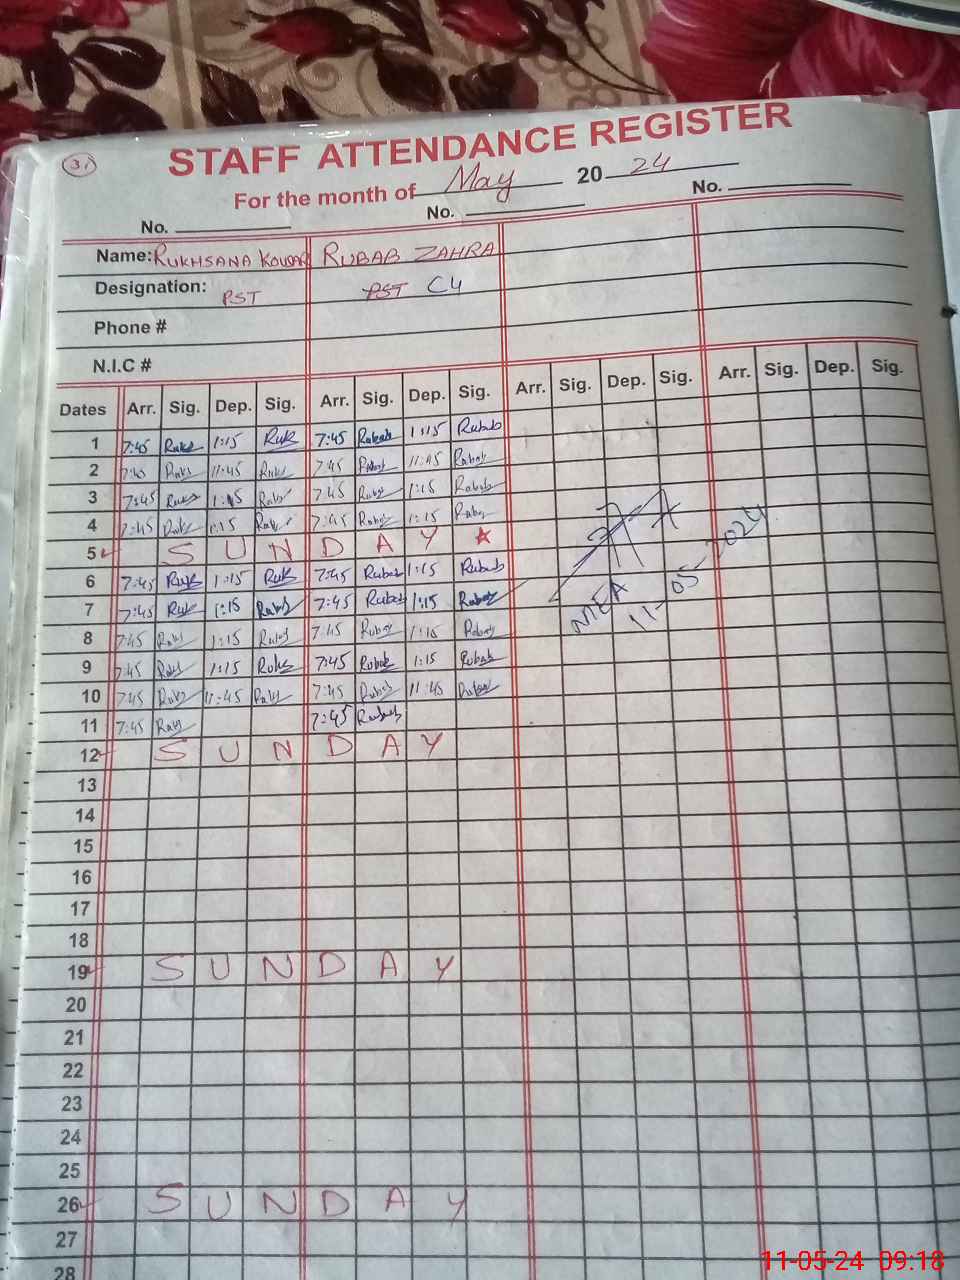 31
STAFF ATTENDANCE REGISTER
For the month of May 20 24
No. No. No.
Name: RUKHSANA KOUSAR RUBAB ZAHRA
Designation: PST PST C4
Phone #
N.I.C #
Dates Arr. Sig. Dep. Sig. Arr. Sig. Dep. Sig. Arr. Sig. Dep. Sig. Arr. Sig. Dep. Sig.
1 7:45 Ruks 1:15 Ruk 7:45 Rubab 1:15 Rubab
2 7:45 Ruks 11:45 Ruks 7:45 Rubab 11:45 Rubab
3 7:45 Ruks 1:15 Ruks 7:45 Rubab 1:15 Rubab
4 7:45 Ruks 1:15 Ruks 7:45 Rubab 1:15 Rubab
5 S U N D A Y
6 7:45 Ruk 1:15 Ruk 7:45 Rubab 1:15 Rubab
7 7:45 Ruk 1:15 Ruks 7:45 Rubab 1:15 Rubab
MEA
11-05-2024
8 7:45 Ruks 1:15 Ruks 7:45 Rubab 1:15 Rubab
9 7:45 Ruks 1:15 Ruks 7:45 Rubab 1:15 Rubab
10 7:45 Ruks 11:45 Ruks 7:45 Rubab 11:45 Rubab
11 7:45 Ruks 7:45 Rubab
12 S U N D A Y
13
14
15
16
17
18
19 S U N D A Y
20
21
22
23
24
25
26 S U N D A Y
27
28
11-05-24 09:18